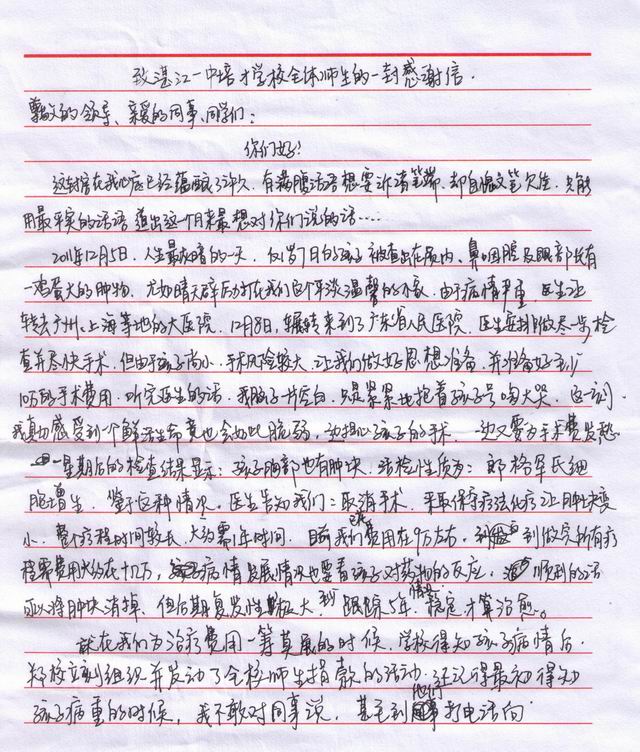 致湛江一中培才学校全体师生的一封感谢信.
尊敬的领导、亲爱的同事、同学们:
你们好!
这封信在我心底已经酝酿了许久,有满腹话语想要诉诸笔端,却自愧文笔欠佳,只能
用最平实的话语道出这个月来最想对你们说的话……
2011年12月5日,人生最灰暗的一天,仅1岁7日的孩子被查出在颅内、鼻咽腔及眼部长有
一鸡蛋大的肿物,尤如晴天霹雳打在我们这个平淡温馨的小家,由于病情严重,医生让
转去广州、上海等地的大医院,12月8日,辗转来到了广东省人民医院,医生安排做尽一步检
查并尽快手术,但由于孩子尚小,手术风险较大,让我们做好思想准备,并准备好5到
10万的手术费用,听完医生的话,我脑子一片空白,只是紧紧地抱着孩子号啕大哭,这一刻
我真切感受到一个鲜活生命竟也会如此脆弱,边担心孩子的手术,边又要为手术费发愁
一星期后的检查结果显示:孩子胸部也有肿块,活检性质为:郎格罕氏细
胞增生,鉴于这种情况,医生告知我们:取消手术,采取保守疗法化疗让肿块变
小,整个疗程时间较长,大约需1年时间,目前我们已花费用在9万左右,到做完所有疗
程需费用大约在十几万,病情发展情况也要看孩子对药物的反应,顺利的话
可以将肿块消掉,但后期复发性极大,到跟踪5年,情况稳定才算治愈。
就在我们为治疗费用一筹莫展的时候,学校得知孩子病情后,
郑校立刻组织并发动了全校师生捐款的活动,还记得最初得知
孩子病重的时候,我不敢对同事说,甚至到他们打电话向